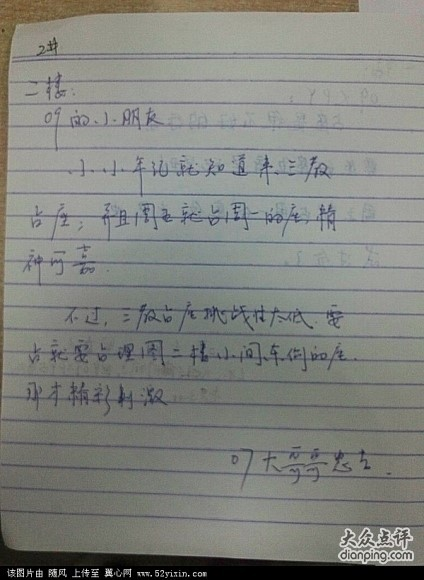 2#
二楼:
09的小朋友
小小年纪就知道来三教
占座,并且周五就占周一的座,精
神可嘉.
不过,三教占座挑战性太低.要
占就要占理图二楼小间东侧的座.
那才精彩刺激
07大哥哥忠上.
大众点评
dianping.com
该图片由 随风 上传至 翼心网
www.52yixin.com